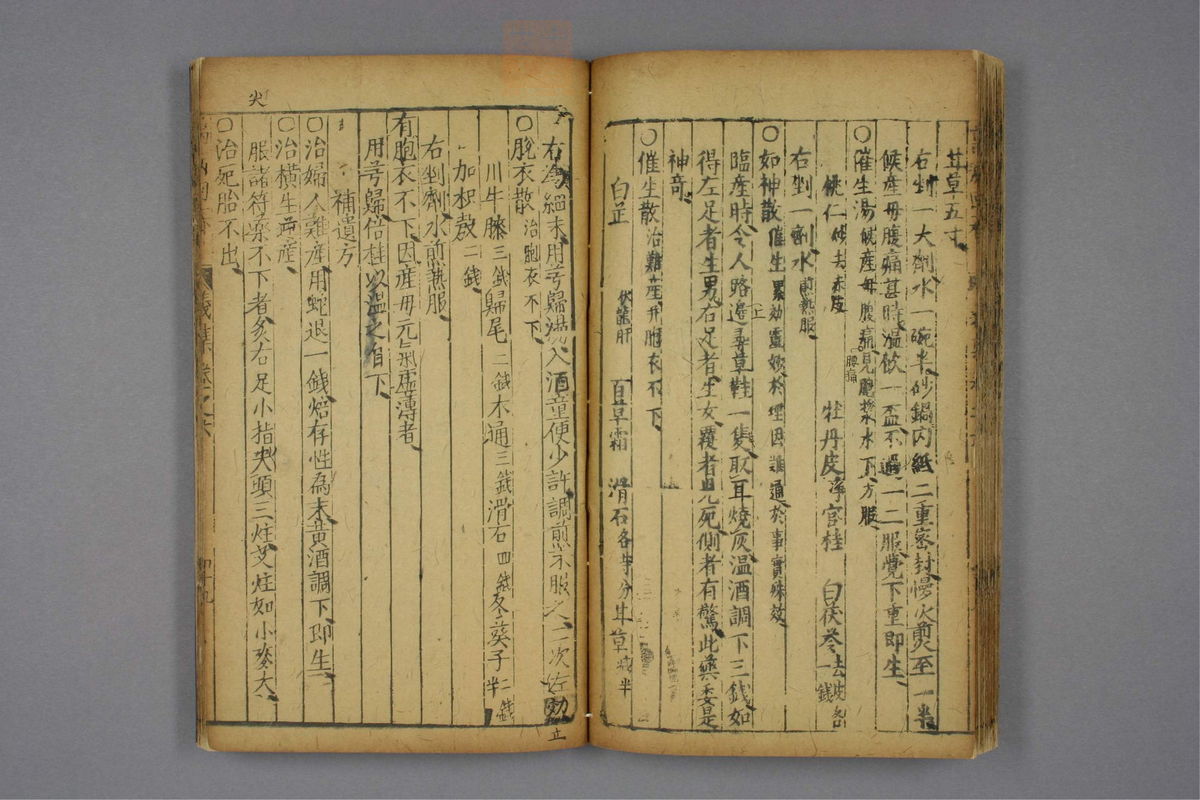 甘草五寸
右剉一大劑水一碗半砂鍋內紙二重密封慢火煎至一半
候產母腹痛甚時溫飲一盃不過一二服覺下重即生
○催生湯候產母腹痛見胞漿水下方服
腰痛
桃仁炒去赤皮 牡丹皮淨官桂 白茯苓去皮各一錢
右剉一劑水煎熱服
○如神散催生累効靈妙於理固難通於事實殊效
臨產時令人路邊尋草鞋一隻取耳燒灰溫酒調下三錢如
得左足者生男右足者生女覆者兒死側者有驚此藥委是
神奇
○催生散治難產并胞衣不下
白芷 伏龍肝 百草霜 滑石各等分甘草減半
右為細末用芎歸湯入酒童便少許調煎末服之二次佐効
正
○脫衣散治胞衣不下
川牛膝三錢歸尾二錢木通三錢滑石四錢冬葵子二錢半
加枳殼二錢
右剉劑水煎熱服
有胞衣不下因產母元氣虛薄者
用芎歸倍桂以溫之自下
補遺方
○治婦人難產用蛇退一錢焙存性為末黃酒調下即生
○治橫生逆產
服諸符藥不下者灸右足小指尖頭三炷艾炷如小麥大
尖
○治死胎不出